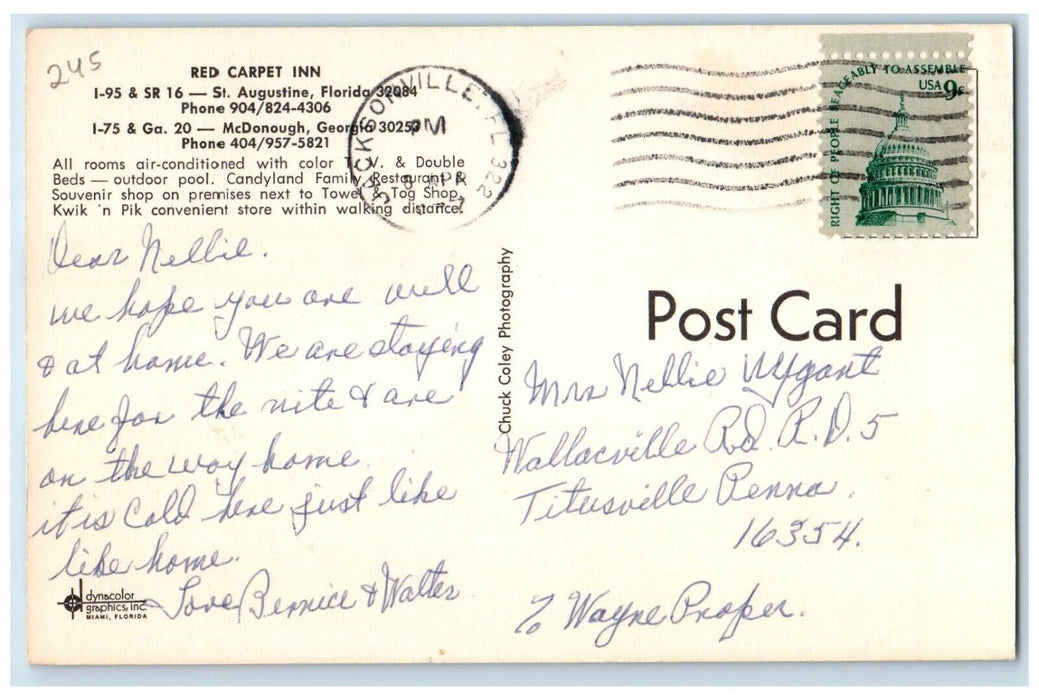 245
RED CARPET INN
I-95 & SR 16 — St. Augustine, Florida 32084
Phone 904/824-4306
I-75 & Ga. 20 — McDonough, Georgia 30253
Phone 404/957-5821
All rooms air-conditioned with color T. V. & Double
Beds — outdoor pool. Candyland Family Restaurant &
Souvenir shop on premises next to Towel & Tog Shop.
Kwik 'n Pik convenient store within walking distance.
JACKSONVILLE, FL 322
PM
8 APR
RIGHT OF PEOPLE PEACEABLY TO ASSEMBLE
USA 9c
Dear Nellie.
we hope you are well
& at home. We are staying
here for the nite & are
on the way home.
it is Cold here just like
like home.
Love Bernice & Walter
dynacolor
graphics, inc.
MIAMI, FLORIDA
Chuck Coley Photography
Post Card
Mrs Nellie Wygant
Wallacville Rd. R.D. 5
Titusville Penna.
16354.
% Wayne Proper.